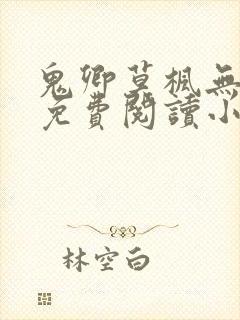 鬼卿草楓無
免費閱讀小
林空白